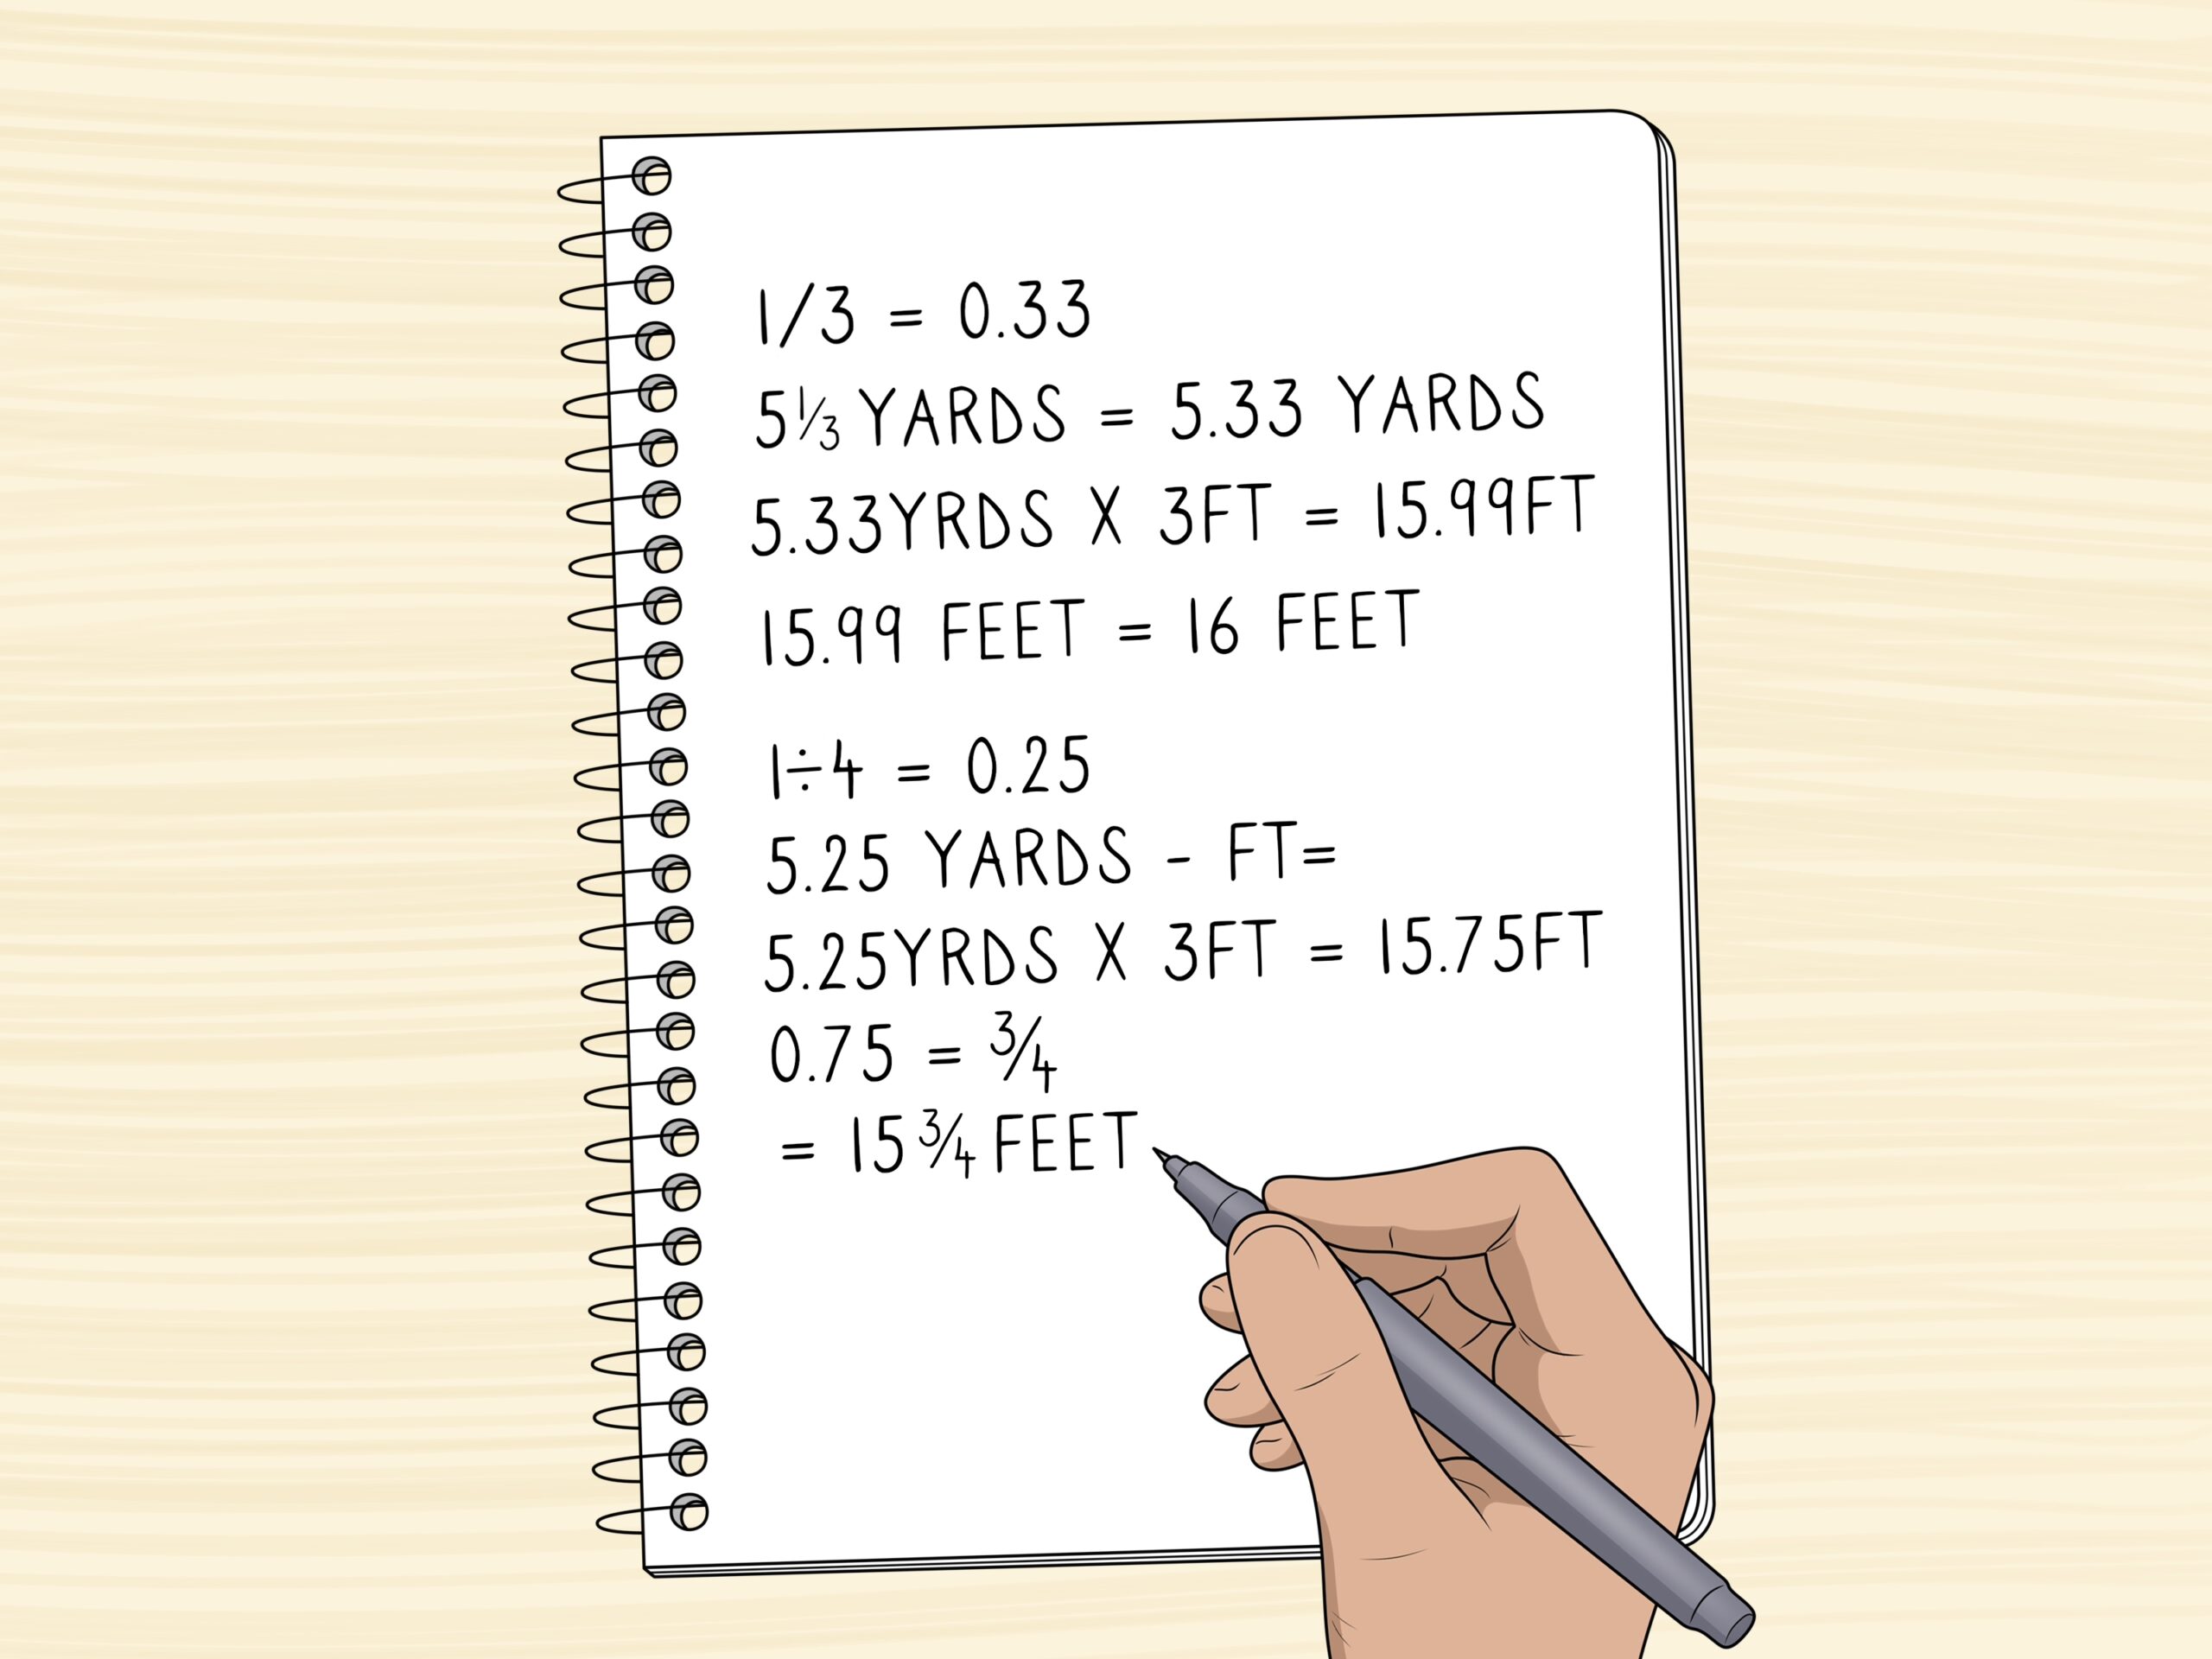 1/3 = 0.33
5⅓ YARDS = 5.33 YARDS
5.33YRDS X 3FT = 15.99FT
15.99 FEET = 16 FEET
1÷4 = 0.25
5.25 YARDS - FT=
5.25YRDS X 3FT = 15.75FT
0.75 = ¾
= 15¾ FEET